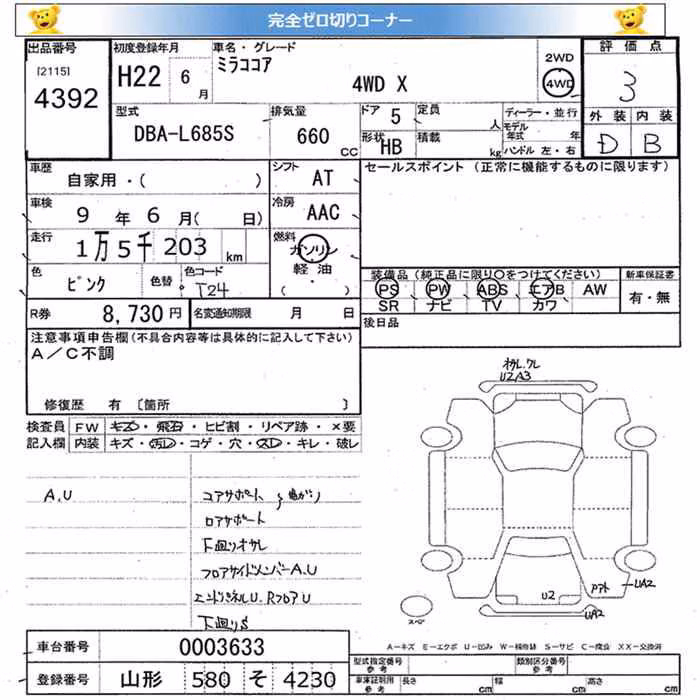 完全ゼロ切りコーナー
出品番号 初度登録年月 車名・グレード 評価点
[2115] 4392 H22 6月 ミラココア 4WD X 2WD 4WD 3
型式 排気量 ドア 5 定員 人 ディーラー・並行 外装 内装
DBA-L685S 660 CC 形状 HB 積載 kg モデル年式 年 ハンドル 左・右 D B
車歴 シフト セールスポイント (正常に機能するものに限ります)
自家用・( ) AT
車検 9年6月( 日) 冷房 AAC
走行 1万5千203km 燃料 ガソリン
軽油・( )
色 ピンク 色替 色コード T24
装備品(純正品に限り○をつけてください) 新車保証書
PS PW ABS エアB AW 有・無
SR ナビ TV カワ
R券 8,730円 名変通知期限 月 日 後日品
注意事項申告欄(不具合内容等は具体的に記入して下さい)
A/C不調
修復歴 有 〔箇所 〕
検査員記入欄 FW キズ・飛石・ヒビ割・リペア跡・×要
内装 キズ・汚レ・コゲ・穴・スレ・キレ・破レ
U2A3
A,U コアサポート 曲がり
ロアサポート
下廻りオサレ
フロアサイドメンバーA.U
エンドパネルU.RフロアU
下廻りS
U2 UA2
UA2
スペア
A=キズ E=エクボ U=凹み W=補修跡 S=サビ C=腐食 XX=交換済
車台番号 0003633
登録番号 山形 580 そ 4230
型式指定番号 参考 類別区分番号 参考
車庫証明用 参考 長さ cm 幅 cm 高さ cm